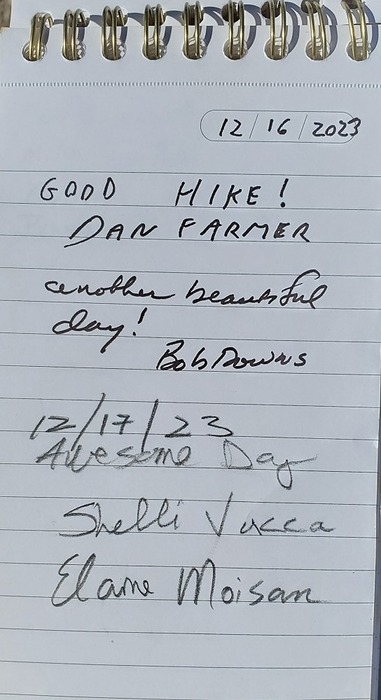 12/16/2023
GOOD HIKE!
DAN FARMER
another beautiful
day!
Bob Downs
12/17/23
Awesome Day
Shelli Vacca
Elaine Moisan